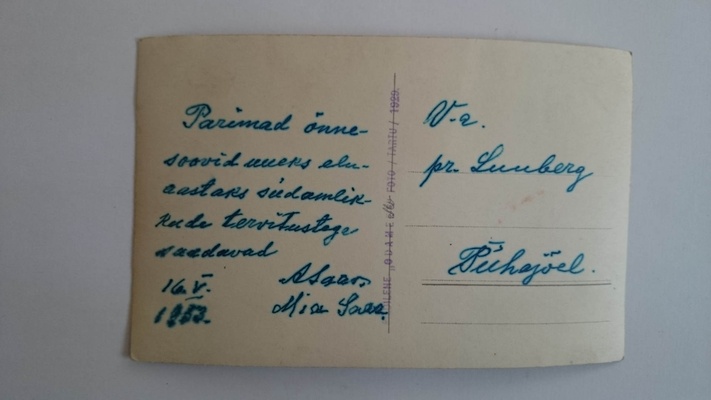 Parimad õnne-
soovid uueks elu-
aastaks südamlik-
kude tervitustega
saadavad
16. V.
1953.
A Saar.
Mia Saar.
FOTO / TARTU / 1929.
V-a.
pr. Lunberg
Pühajõel.